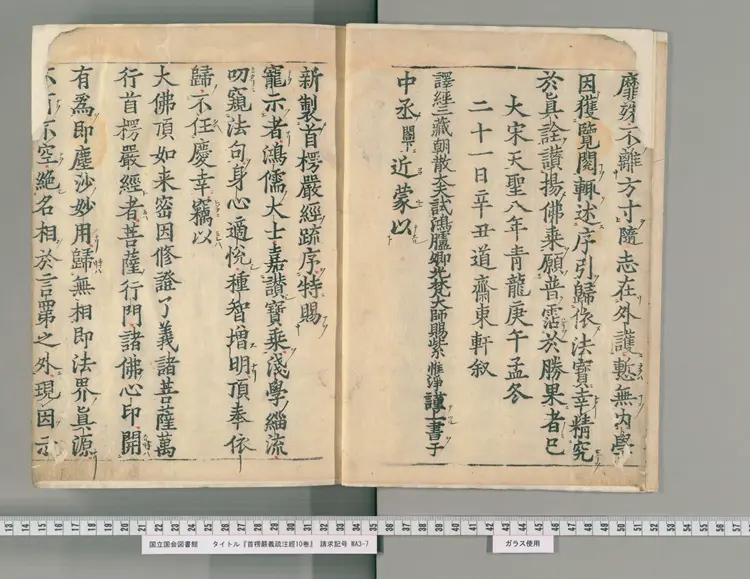 靡不離方寸隨志在外護慙無内學
因獲覽閲輒述序引歸依法寶幸精究
於眞詮讃揚佛乘願普霑於勝果者已
大宋天聖八年青龍庚午孟冬
二十一日辛丑道齋東軒叙
譯經三藏朝散大夫試鴻臚卿光梵大師賜紫惟淨謹上書于
中丞閣下近蒙以
新製首楞嚴經疏序特賜
寵示者鴻儒大士嘉讃寶乘淺學緇流
叨窺法句身心適悅種智增明頂奉依
歸不任慶幸竊以
大佛頂如来密因修證了義諸菩薩萬
行首楞嚴經者菩薩行門諸佛心印開
有爲即塵沙妙用歸無相即法界眞源
不空絶名相於言之外現因示
国立国会図書館 タイトル『首楞嚴義疏注經10巻』 請求記号 WA3-7
ガラス使用
13 14 15 16 17 18 19 20 21 22 23 24 25 26 27 28 29 30 31 32 33 34 35 36 37 38 39 40 41 42 43 44 45 46 47 48 49 50 51 52 53 54 55 56 57